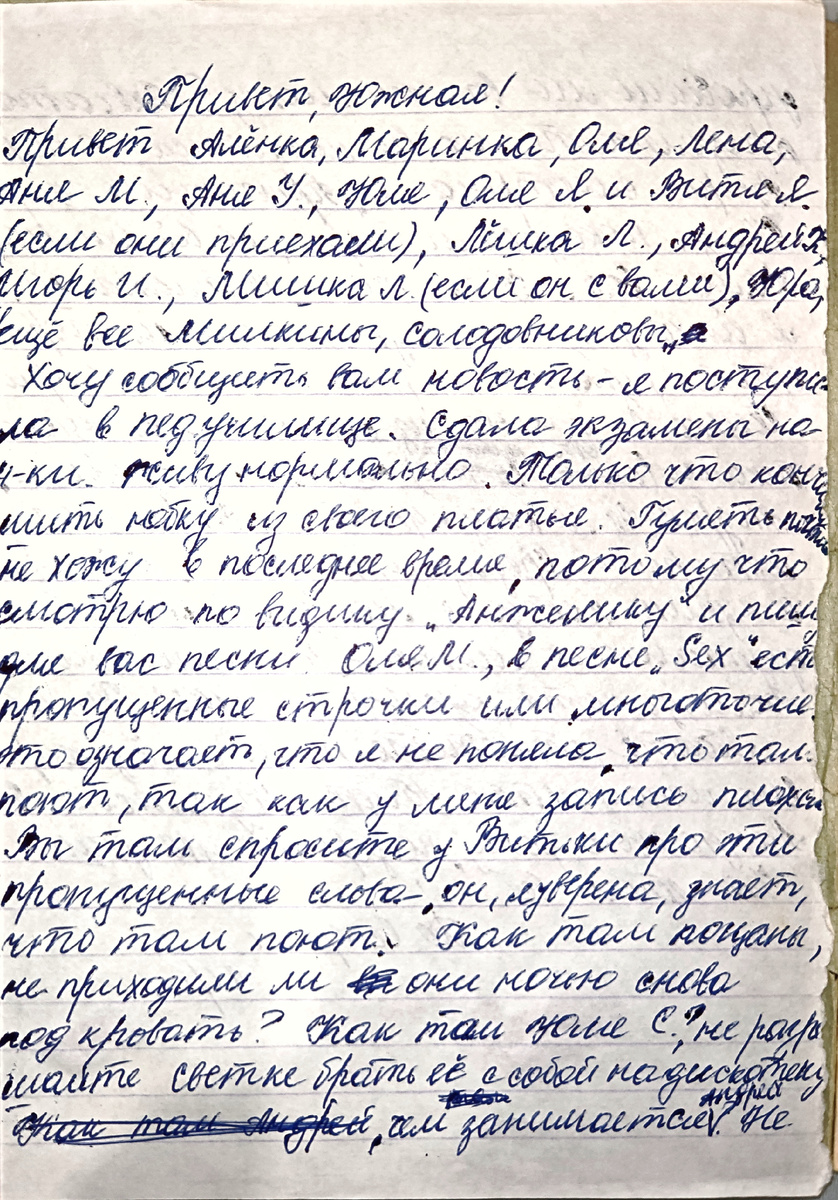 Привет, Южная!
Привет Алёнка, Маринка, Оля, Лена,
Аня М., Аня У., Юля, Оля Я. и Витя Я.
(если они приехали), Лёшка Л., Андрей К,
Игорь И., Мишка Л (если он с вами), Юра,
ещё все Милкины, Солодовниковы
Хочу сообщить вам новость - я поступи-
ла в педучилище. Сдала экзамены на
4-ки. Живу нормально. Только что кон
шить юбку из своего платья. Гулять
не хожу в последнее время, потому что
смотрю по видику „Анжелику" и пишу
для вас песни. Оля М., в песне „Sex" есть
пропущенные строчки или многоточие
это означает, что я не поняла, что там
поют, так как у меня запись плохая
Вы там спросите у Витьки про эти
пропущенные слова-, он, я уверена, знает,
что там поют. Как там поцаны,
не приходили ли они ночью снова
под кровать? Как там Юля С.?, не разре
шайте Светке брать её с собой на дискотеку
Как там Андрей, чем занимается Андрей? Не